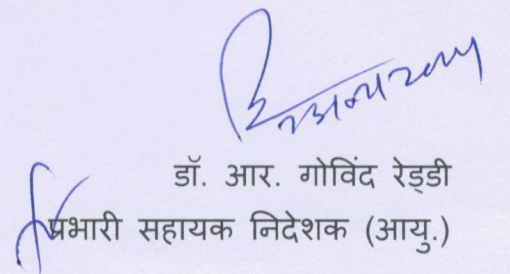 डॉ. आर. गोविंद रेड्डी
प्रभारी सहायक निदेशक (आयु.)